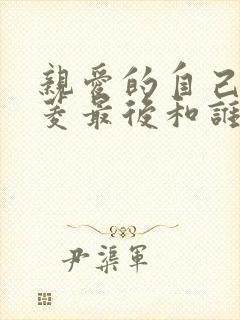 親愛的自己
菱最後和誰
尹渠軍